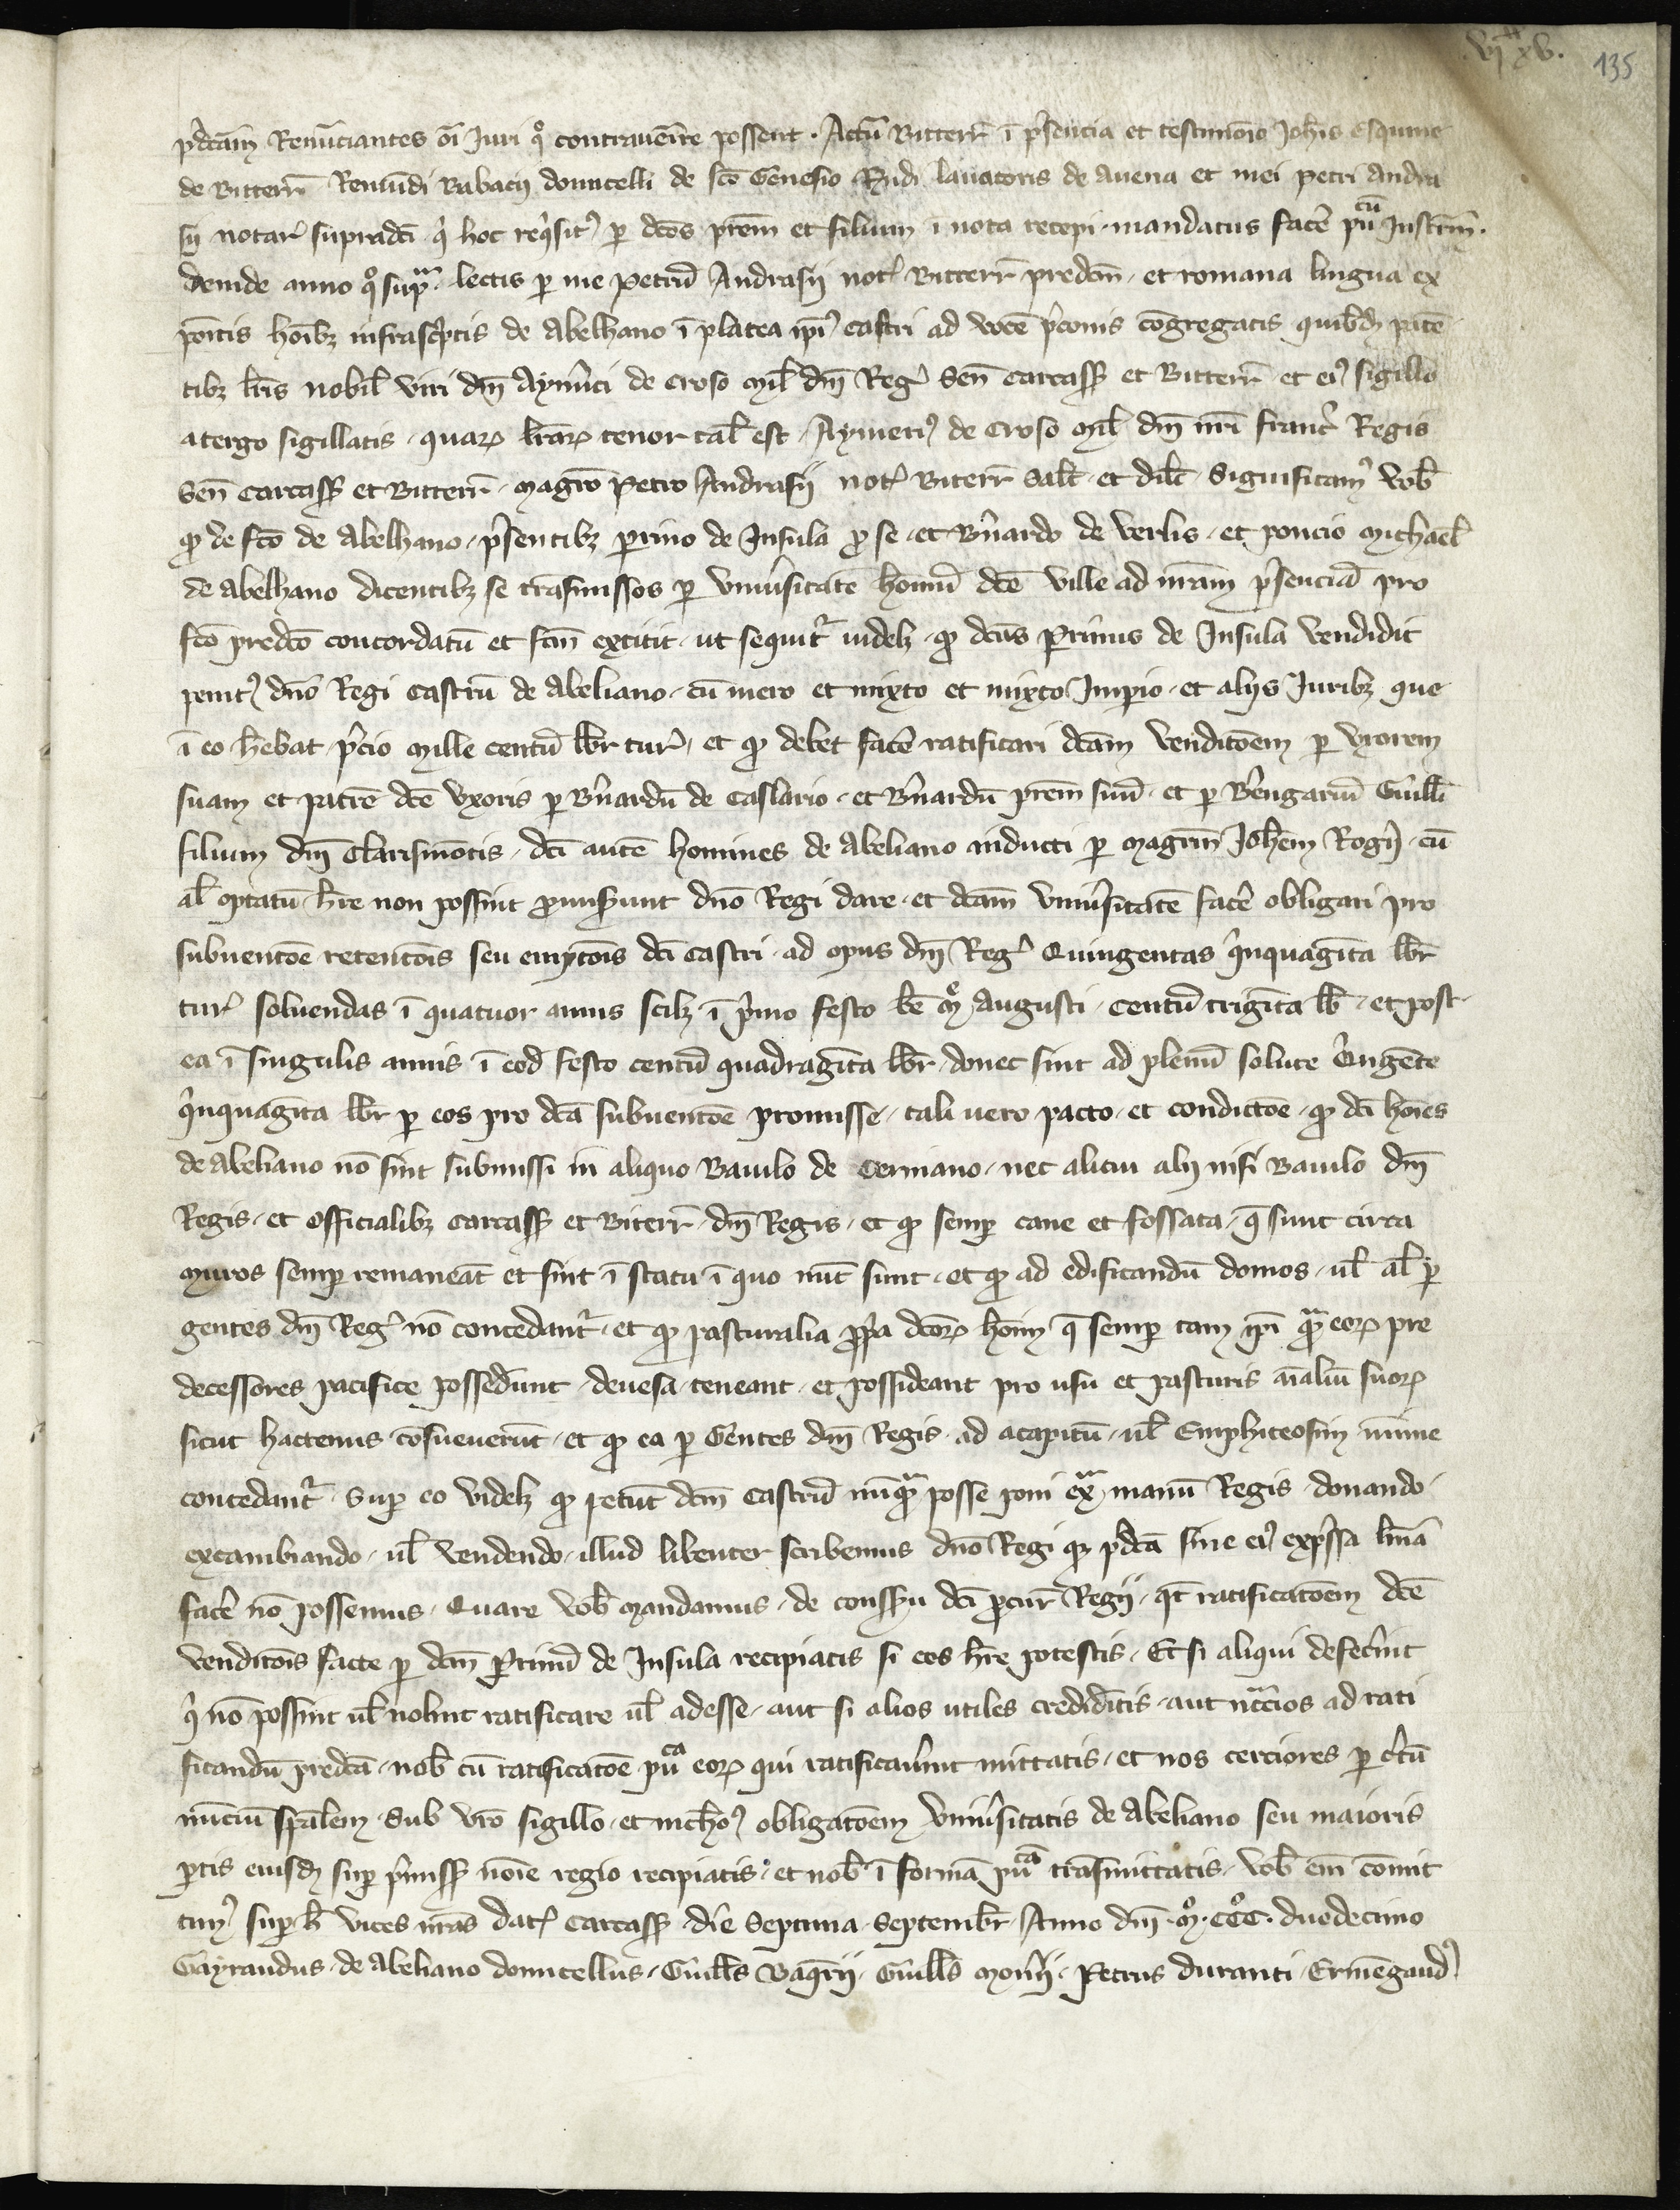 vj xx xv. 135
p̄dcām Renūciantes oī Juri qͦ contrauenīre possent · Actū Bitterr̄ ī p̄sencia et testimōio Joh̄is Esquine
de Bitterr̄ Remūdi Rabacij domicelli de sc̄o Genesio R̄ndi lauatoris de auena et mei petri Andra
sij notar̄ supradc̄i qͥ hoc reqͥsitꝰ ꝑ dcōs pr̄em et filium ī nota recepi · mandatus facē pūcū Instrm̄ ·
deinde anno qͦ supͣ · lectis ꝑ me Petrū Andrasij not̄ Bitterr̄ predcm̄ · et romana lingua ex
pōitis hoī̄bꝫ infrascͥptis de Abelhano ī platea ipīꝰ castri ad vocē p̄conis cōgregatis quibꝰdꝫ patē
tibꝫ lr̄is nobil̄ viri dn̄i Aymīci de Croso mil̄ dn̄i Reḡ Sen̄ Carcass̄ et Bitterr̄ et eiꝰ sigillo
atergo sigillatis · quarꝝ lr̄arꝝ tenor tal̄ est · Aymeriꝰ de Croso mil̄ dn̄i nr̄i franc̄ Regis
Sen̄ Carcass̄ et Bitterr̄ · magrō Petro Andrasij not̄ Biterr̄ Salt̄ · et dil̄c · Significamꝰ vob̄
ꝙ de fc̄o de Abelhano · p̄sentibꝫ ꝑrino de Insula ꝓ se · et Bn̄ardo de verlis · et poncio michael̄
de abelhano dicentibꝫ se trāsmissos ꝑ vniūsitatē hoīnū dcē ville ad nrām p̄senciā pro
fc̄o predcō concordatū et fcm̄ extitit · ut sequit̄ · uidelꝫ · ꝙ dcūs Perrinus de Insula vendidit
penitꝰ dn̄o Regi Castrū de abeliano · cū mero et mixto et mixto Imperio · et alijs Juribꝫ que
ī eo h̄ebat p̄cio mille centū lbr̄ tur̄ · et ꝙ debet facē ratificari dcām venditōem ꝑ vxorem
suam et patrē dcē vxoris ꝑ Bn̄ardū de Caslario · et Bn̄ardū pr̄em suū · et ꝑ B̄engariū Guill̄i
filium dn̄i Clarismōtis · dcī autē homines de Abeliano inducti ꝑ magrm̄ Joh̄em Rogr̄ij · cū
al̄ optatū h̄re non possint ꝓmis̄unt dn̄o Regi dare · et dcām vniūsitatē facē obligari pro
subuentōe retentōis seu emptōis dcī castri · ad opus dn̄i Reḡ Quingentas qͥnquagīta lbr̄
tur̄ soluendas ī quatuor annis scilꝫ ī p̄mo festo bē mͤ Augusti · Centū trigīta lb̄ · et post
ea ī singulis annis ī eod̄ festo centū quadragīta lbr̄ · donec sint ad plenū solute Qͥngēte
qͥnquagīta lbr̄ ꝑ eos pro dcā subuentōe promisse · tali uero pacto · et condictōe · ꝙ dcī hoīes
de abeliano nō sint submissi in aliquo Baiulo de Cermano · nec alicui alij nisi Baiulo dn̄i
Regis · et officialibꝫ Carcass̄ et Biterr̄ · dn̄i Regis · et ꝙ semꝑ caue et fossata · q̄ sunt circa
muros semꝑ remaneāt et sint ī statu ī quo nūc sunt · et ꝙ ad edificandū domos · ul̄ al̄ ꝑ
gentes dn̄i Reḡ nō concedant̄ · et ꝙ pasturalia ꝓpa dcōrꝝ hoīm q̄ semꝑ tam ipī qͣm eorꝝ pre
decessores pacifice possed̄unt · deuesa · teneant · et possideant pro usu et pasturis aīaliū suorꝝ
sicut hactenus cōsueuerūt · et ꝙ ea ꝑ Gentes dn̄i Regis ad acapitū · ul̄ Emphiteosim mīme
concedant̄ · Suꝑ eo videlꝫ ꝙ petūt dcm̄ Castrū nūqͣm posse poni exͣ manū Regis donando ·
excambiando · ul̄ vendendo · illud libenter scribemus dn̄o Regi qꝫ p̄dcā sine eiꝰ exp̄ssa lnīa
facē nō possemus · Quare vob̄ mandamus · de conss̄u dcī ꝓcur̄ Regij · qt̄ ratificatōem dcē
venditōis facte ꝑ dcm̄ Perinū de Insula recipiatis si eos h̄re potestis · Et si aliqui defec̄int
qͥ nō possint ul̄ nolint ratificare ul̄ adesse · aut si alios utiles credid̄itis · aut nc̄cios ad rati
ficandū predcā · nob̄ cū ratificatōe pūca eorꝝ qui ratificaūint mittatis · et nos cerciores ꝑ c̄tū
nūciū spālem · Sub vrō sigillo · et nichōꝰ obligatōem vniūsitatis de Abeliano seu maioris
ꝑtis eiusdꝫ suꝑ p̄miss̄ noīe regio recipiatis · et nob̄ ī formā pūca trāsmittatis · vob̄ em̄ cōmit
timꝰ suꝑ h̄ vices nrās Dat̄ Carcass̄ · die Septima Septembr̄ · Anno dn̄i · mͦ · cccͦ · duodecimo
Gayraudus · de abeliano domicellus · Guill̄s Vaqrīj · Guill̄s morīj · Petrus duranti · Ermēgaudꝰ